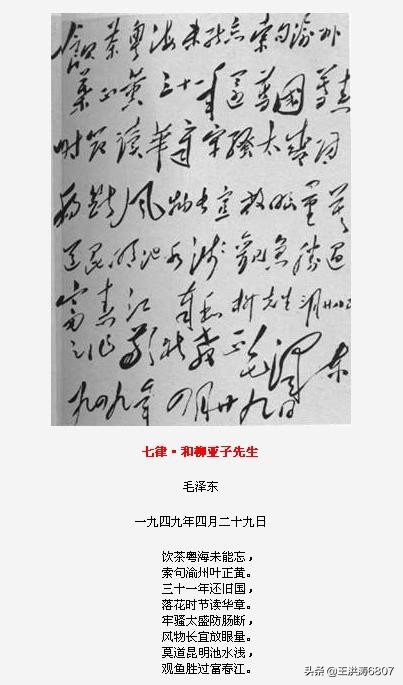 飲茶粤海未能忘索句渝州
葉正黄三十一年還舊國落花
時節讀華章牢騷太盛防
腸斷風物長宜放眼量莫
道昆明池水淺觀魚勝過
富春江 奉和柳先生三月廿八日
之作敬祈教正 毛澤東
一九四九年四月廿九日
七律·和柳亚子先生
毛泽东
一九四九年四月二十九日
饮茶粤海未能忘，
索句渝州叶正黄。
三十一年还旧国，
落花时节读华章。
牢骚太盛防肠断，
风物长宜放眼量。
莫道昆明池水浅，
观鱼胜过富春江。
头条 @王洪涛6807